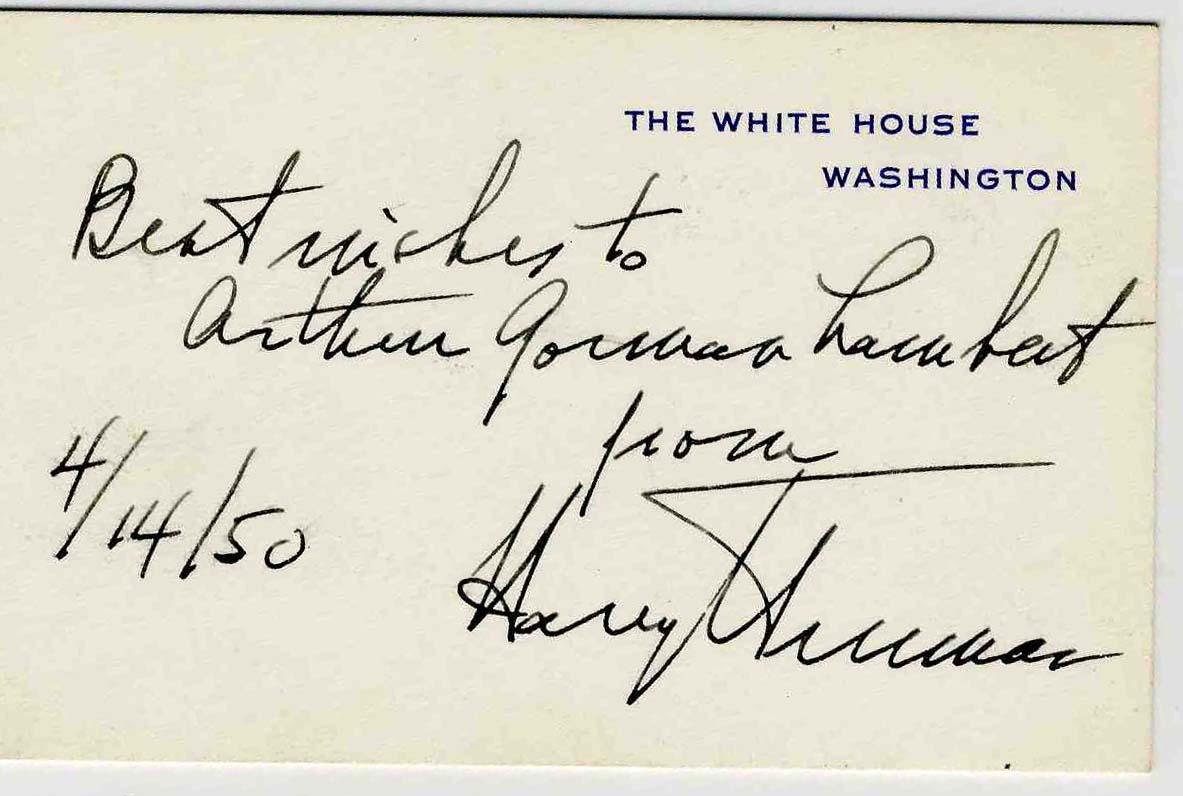 THE WHITE HOUSE
WASHINGTON
Best wishes to
Arthur Gorman Lambert
from
4/14/50
Harry Truman